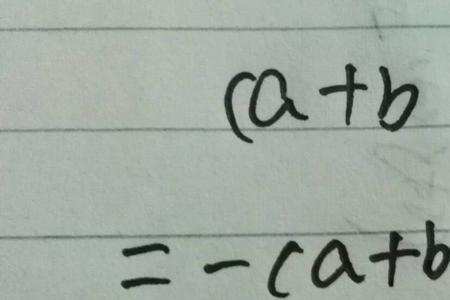 (a+b
=-(a+b